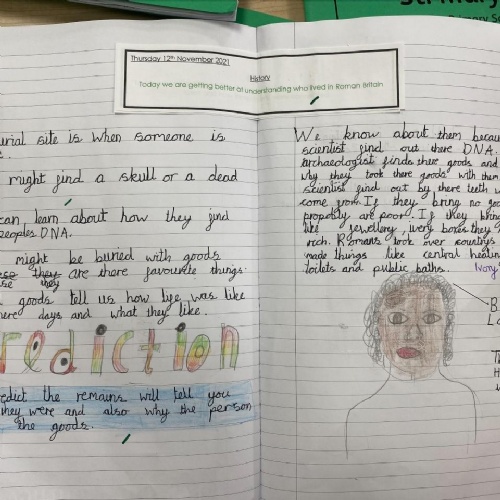 Primary Sc
Thursday 12th November 2021
History
Today we are getting better at understanding who lived in Roman Britain
urial site is when someone is
might find a skull or a dead
can learn about how they find
peoples DNA.
might be buried with goods
they are there favourite things
they
goods tell us how life was like
here days and what they like.
rediction
edict the remains will tell you
they were and also why the person
the goods.
We know about them becau
scientist find out there DNA.
Archaeologist finds there goods and
why they took there goods with them
scientist find out by there teeth w
come from. If they bring no goo
propably are poor. If they bring
like jewellery, ivory boxes they
rich. Romans took over countrys
made things like central heatin
toilets and public baths.
Ivory
B
L
T
H